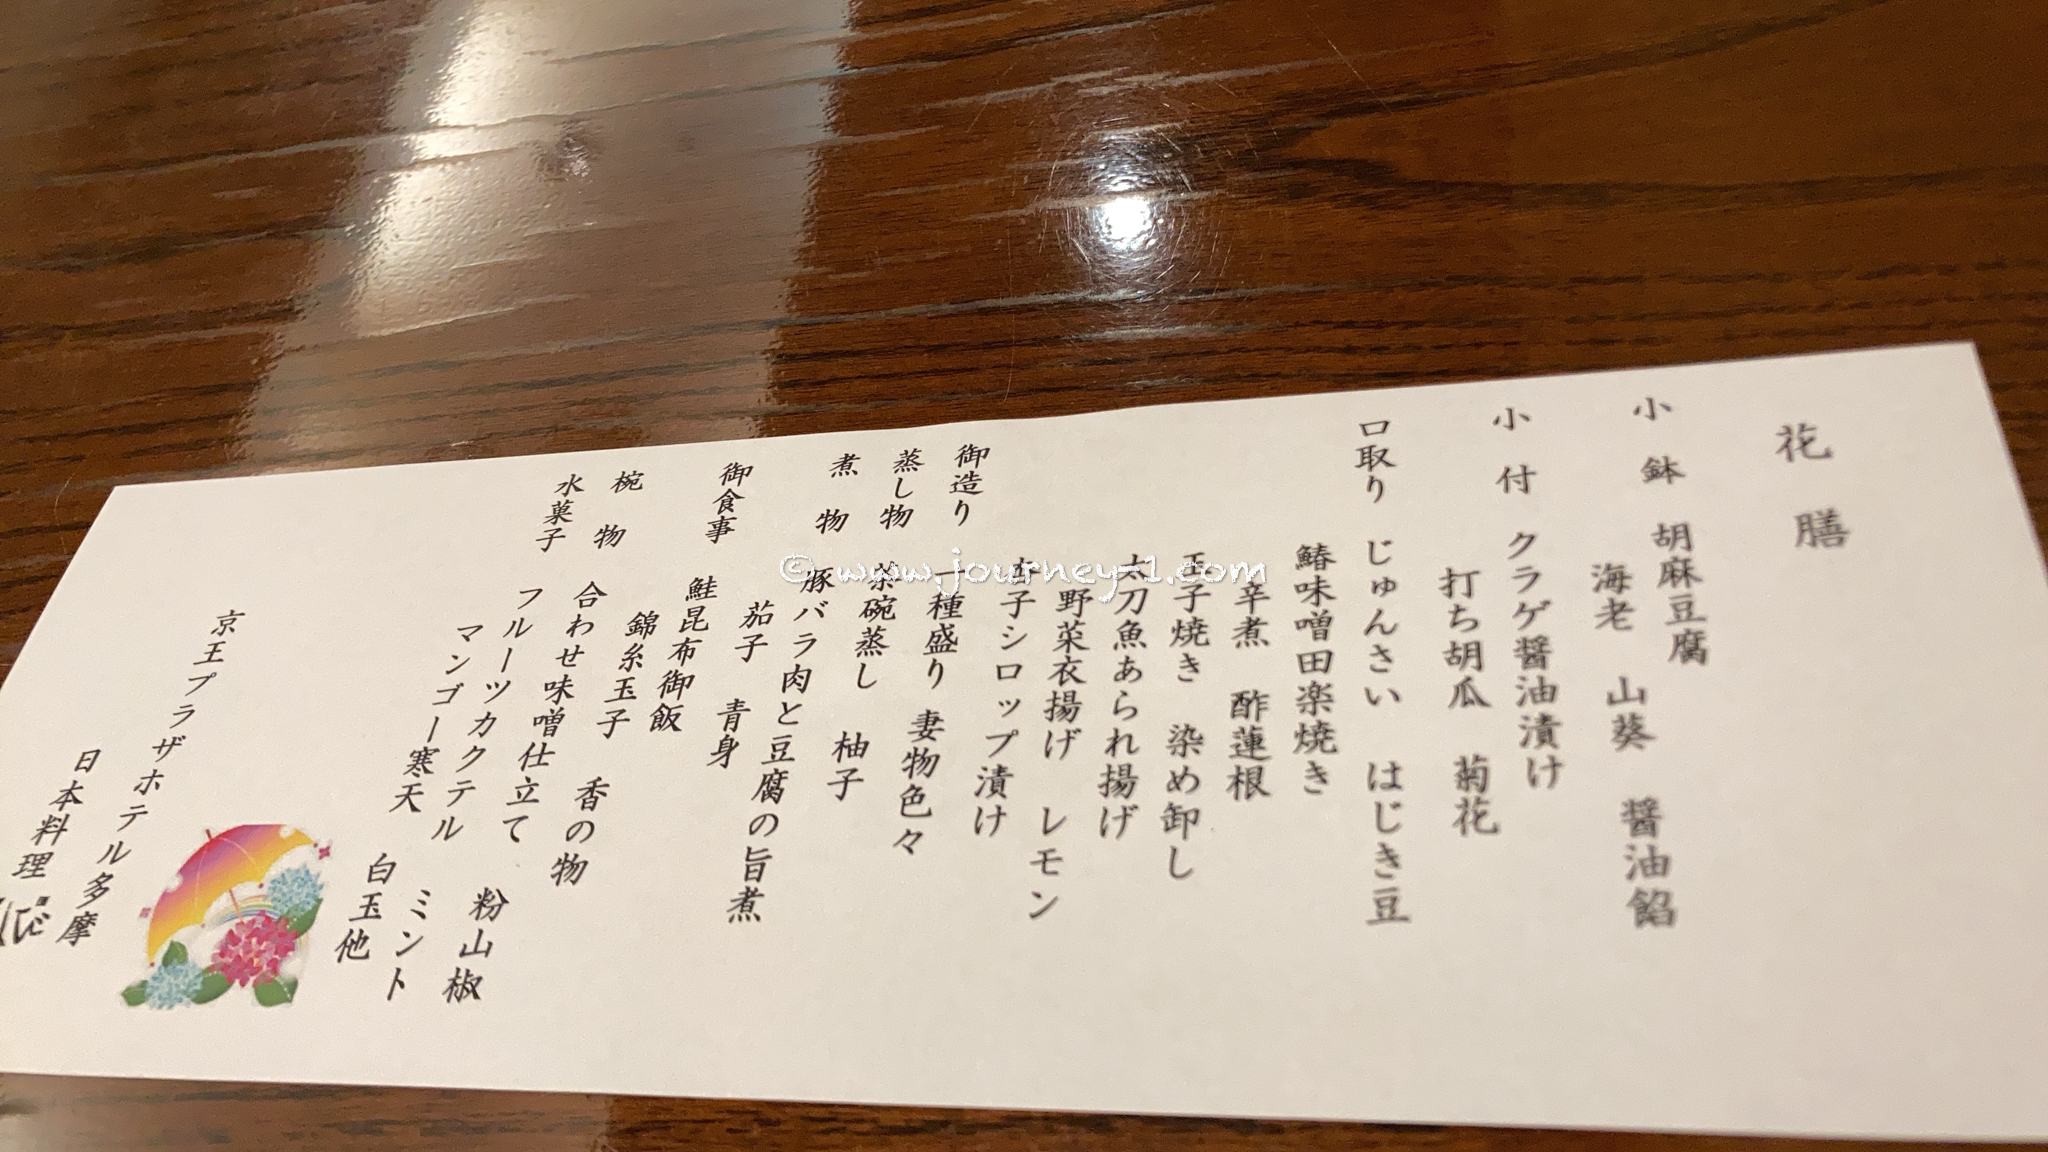 花膳
小鉢 胡麻豆腐
海老 山葵 醤油餡
小付 クラゲ醤油漬け
打ち胡瓜 菊花
口取り じゅんさい はじき豆
鰆味噌田楽焼き
辛煮 酢蓮根
玉子焼き 染め卸し
太刀魚あられ揚げ
野菜衣揚げ レモン
杏子シロップ漬け
御造り 一種盛り 妻物色々
蒸し物 茶碗蒸し 柚子
煮物 豚バラ肉と豆腐の旨煮
茄子 青身
御食事 鮭昆布御飯
錦糸玉子 香の物
椀物 合わせ味噌仕立て 粉山椒
水菓子 フルーツカクテル ミント
マンゴー寒天 白玉他
京王プラザホテル多摩
日本料理
© www.journey-1.com